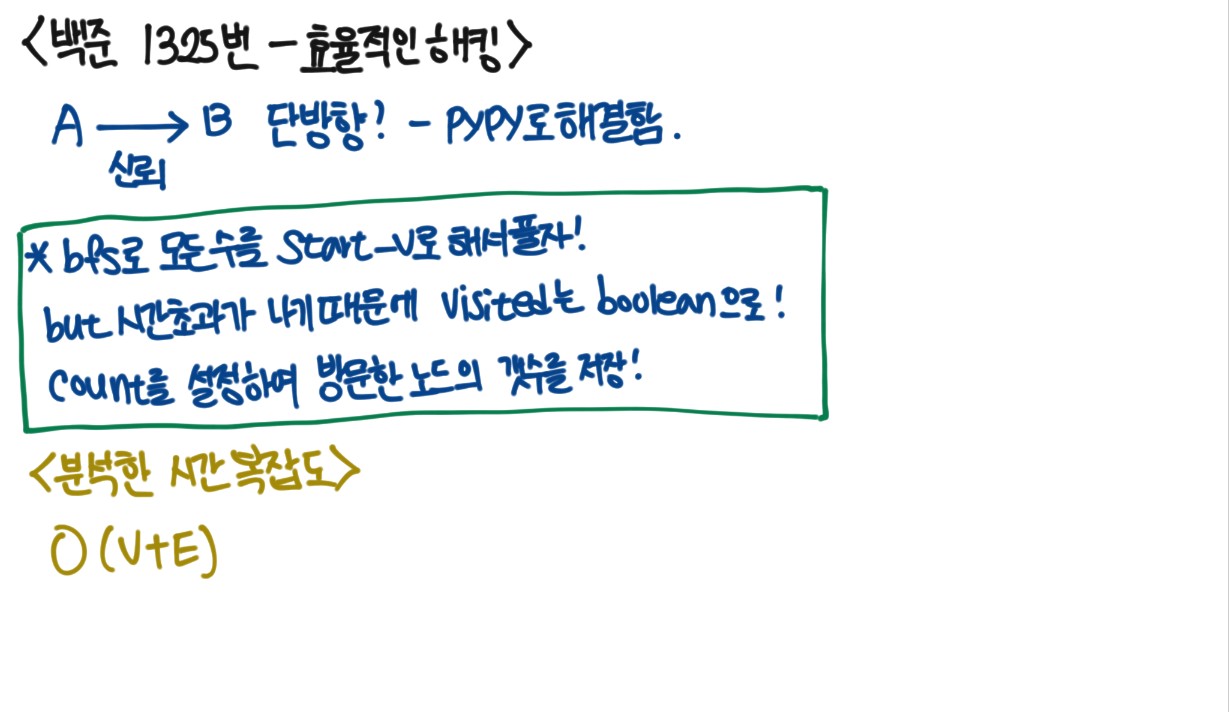 <백준 1325번 - 효율적인 해킹>
A → B 단방향? - PYPY로 해결함.
신뢰
* bfs로 모든 수를 Start_V로 해서 풀자!
but 시간초과가 나기 때문에 visited는 boolean으로!
Count를 설정하여 방문한 노드의 갯수를 저장!
<분석한 시간 복잡도>
O(V+E)